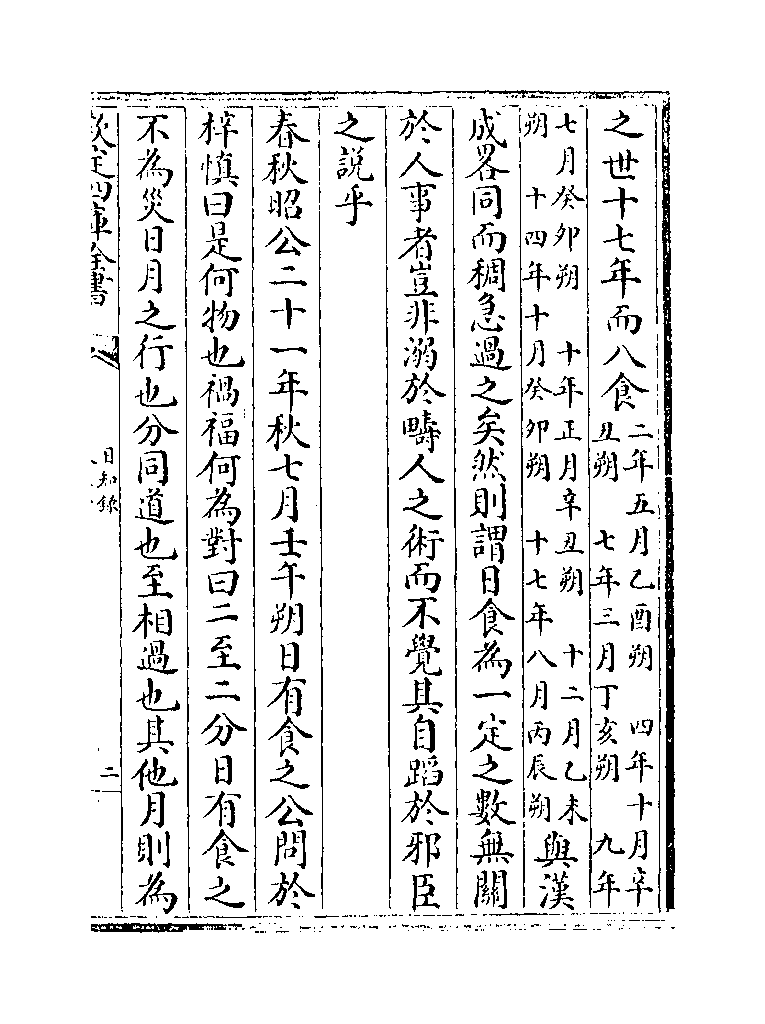 之世十七年而八食二年五月乙酉朔 四年十月辛
丑朔 七年三月丁亥朔 九年
七月癸卯朔 十年正月辛丑朔 十二月乙未
朔 十四年十月癸卯朔 十七年八月丙辰朔與漢
成畧同而稠急過之矣然則謂日食為一定之數無關
於人事者豈非溺於疇人之術而不覺其自蹈於邪臣
之説乎
春秋昭公二十一年秋七月壬午朔日有食之公問於
梓慎曰是何物也禍福何為對曰二至二分日有食之
不為災日月之行也分同道也至相過也其他月則為
欽定四庫全書
日知録
二